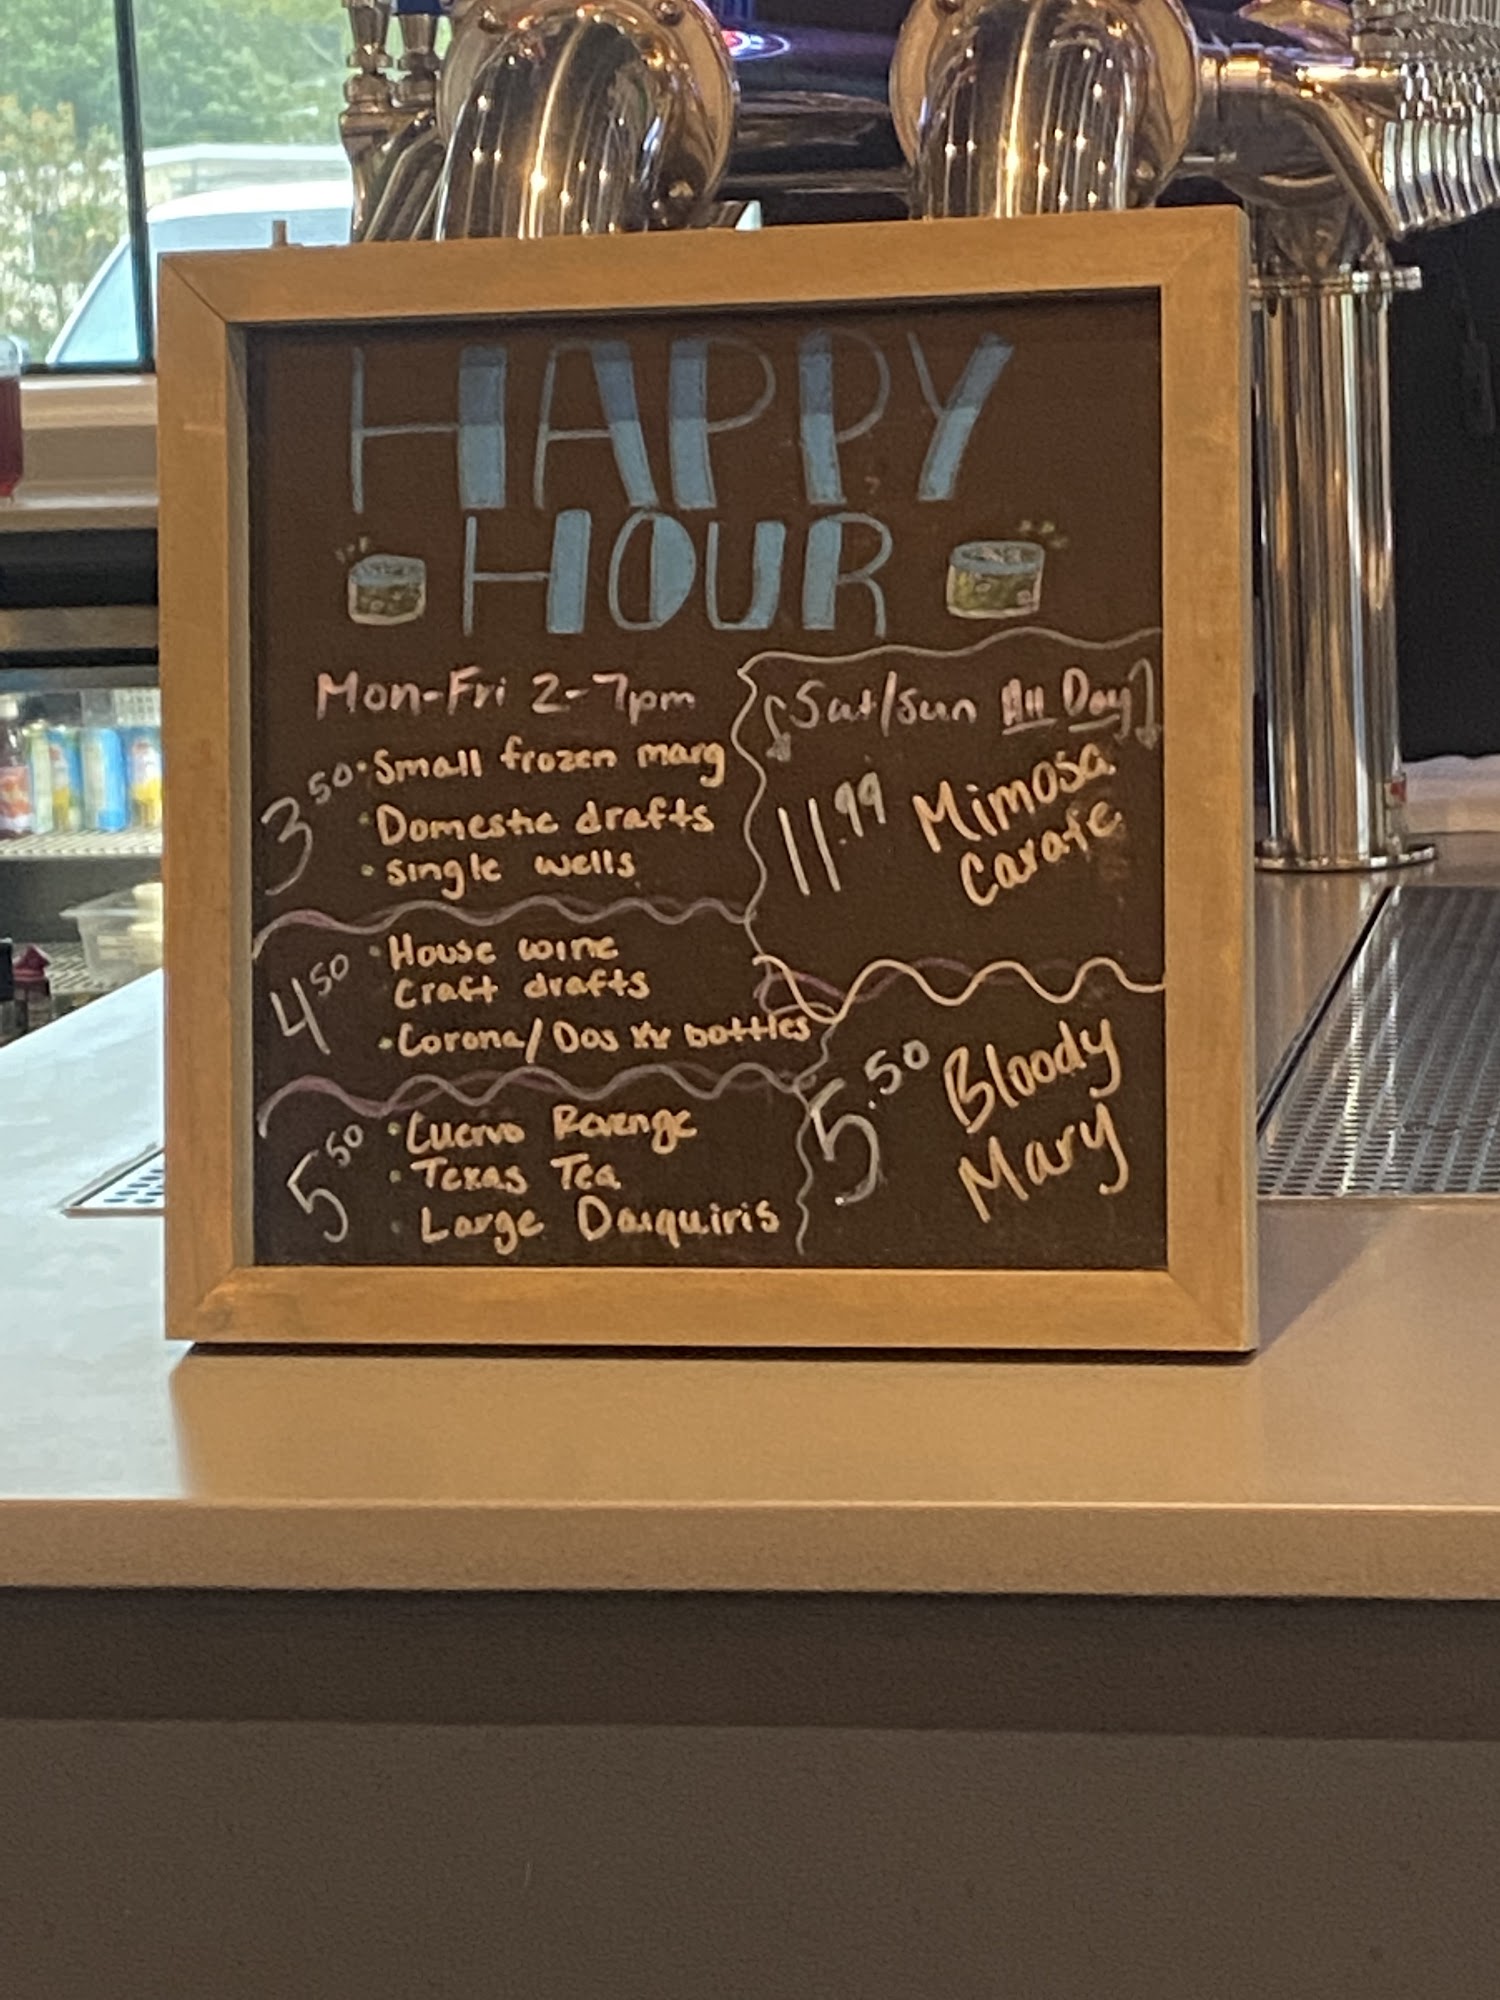 HAPPY
HOUR
Mon-Fri 2-7pm
3.50
• Small frozen marg
• Domestic drafts
• Single wells
4.50
• House wine
craft drafts
• Corona/Dos XX bottles
5.50
• Cuervo Revenge
• Texas Tea
• Large Daiquiris
Sat/Sun All Day
11.99 Mimosa
Carafe
5.50 Bloody
Mary